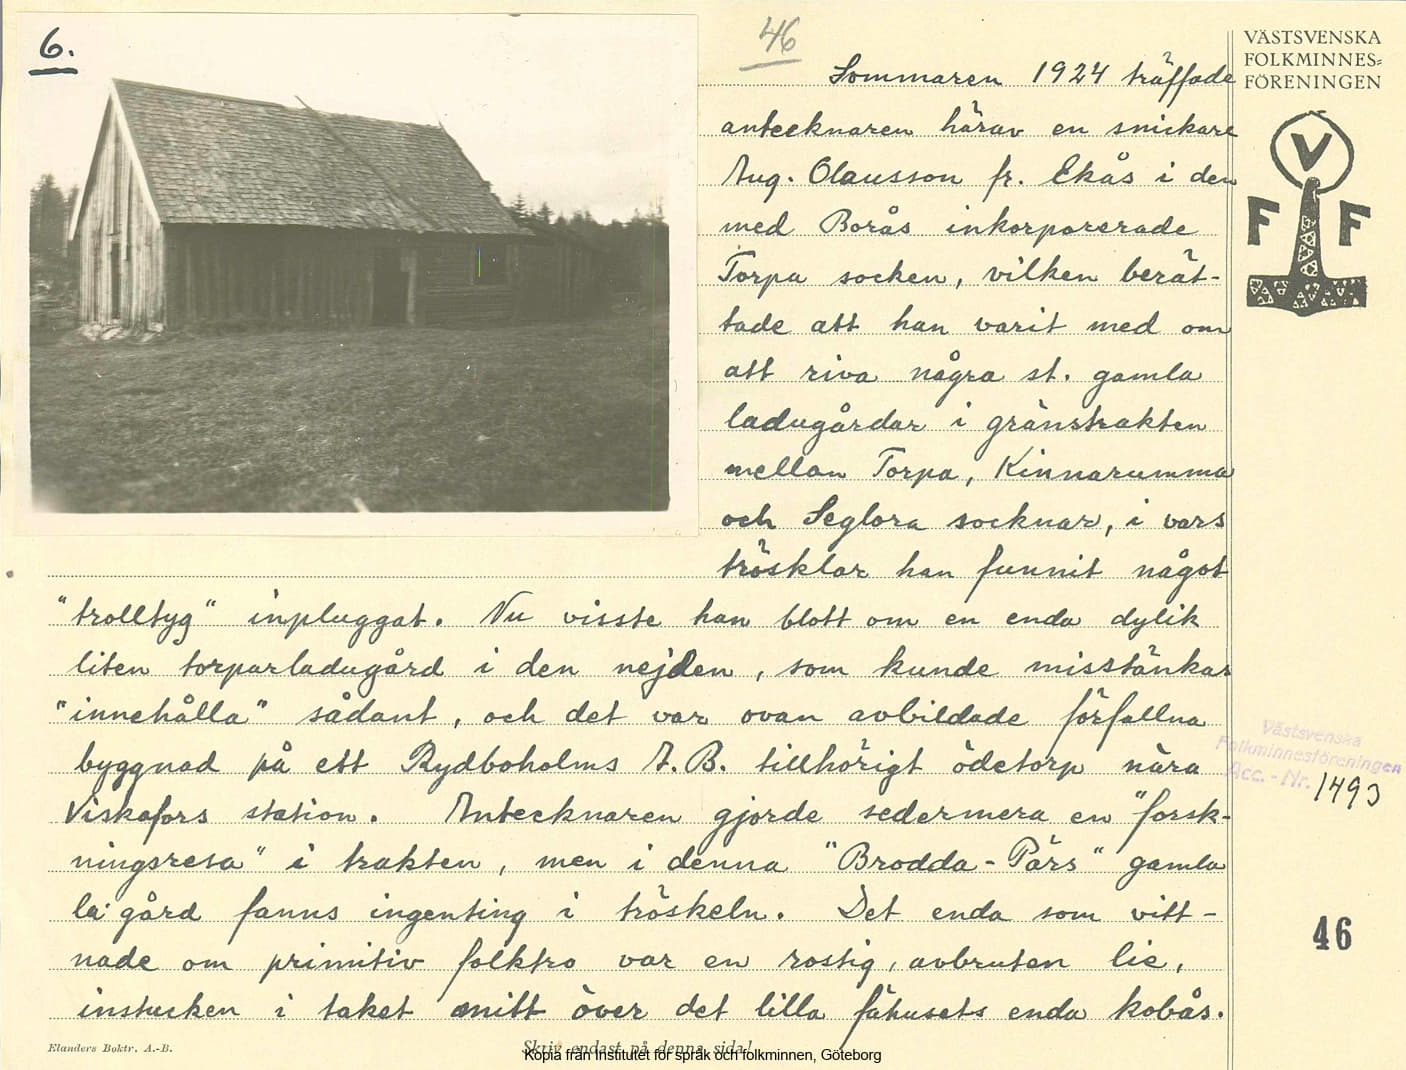 6.
46
VÄSTSVENSKA
FOLKMINNES=
FÖRENINGEN
V
F F
Sommaren 1924 träffade
antecknaren härav en snickare
Aug. Olausson fr. Ekås i den
med Borås inkorporerade
Torpa socken, vilken berät-
tade att han varit med om
att riva några st. gamla
ladugårdar i gränstrakten
mellan Torpa, Kinnarumma
och Seglora socknar, i vars
trösklar han funnit något
"trolltyg" inpluggat. Nu visste han blott om en enda dylik
liten torparladugård i den nejden, som kunde misstänkas
"innehålla" sådant, och det var ovan avbildade förfallna
byggnad på ett Rydboholms A.B. tillhörigt ödetorp nära
Viskafors station. Antecknaren gjorde sedermera en "forsk-
ningsresa" i trakten, men i denna "Brodda-Pärs" gamla
la'gård fanns ingenting i tröskeln. Det enda som vitt-
nade om primitiv folktro var en rostig, avbruten lie,
instucken i taket mitt över det lilla fähusets enda kobås.
Västsvenska
Folkminnesföreningen
Acc.-Nr. 1493
46
Elanders Boktr. A.-B.
Skriv endast på denna sida!
Kopia från Institutet för språk och folkminnen, Göteborg